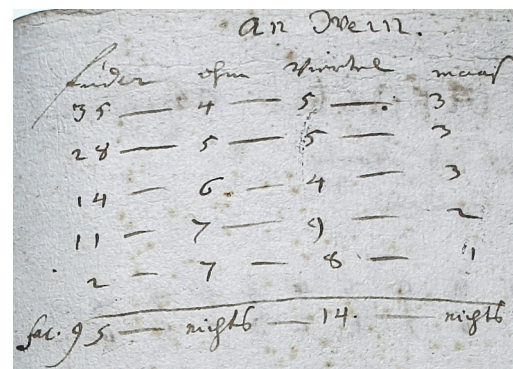 an Wein.
fuder ohm Viertel maas
35 — 4 — 5 — 3
28 — 5 — 5 — 3
14 — 6 — 4 — 3
11 — 7 — 9 — 2
2 — 7 — 8 — 1
fac. 95 — nichts — 14. — nichts